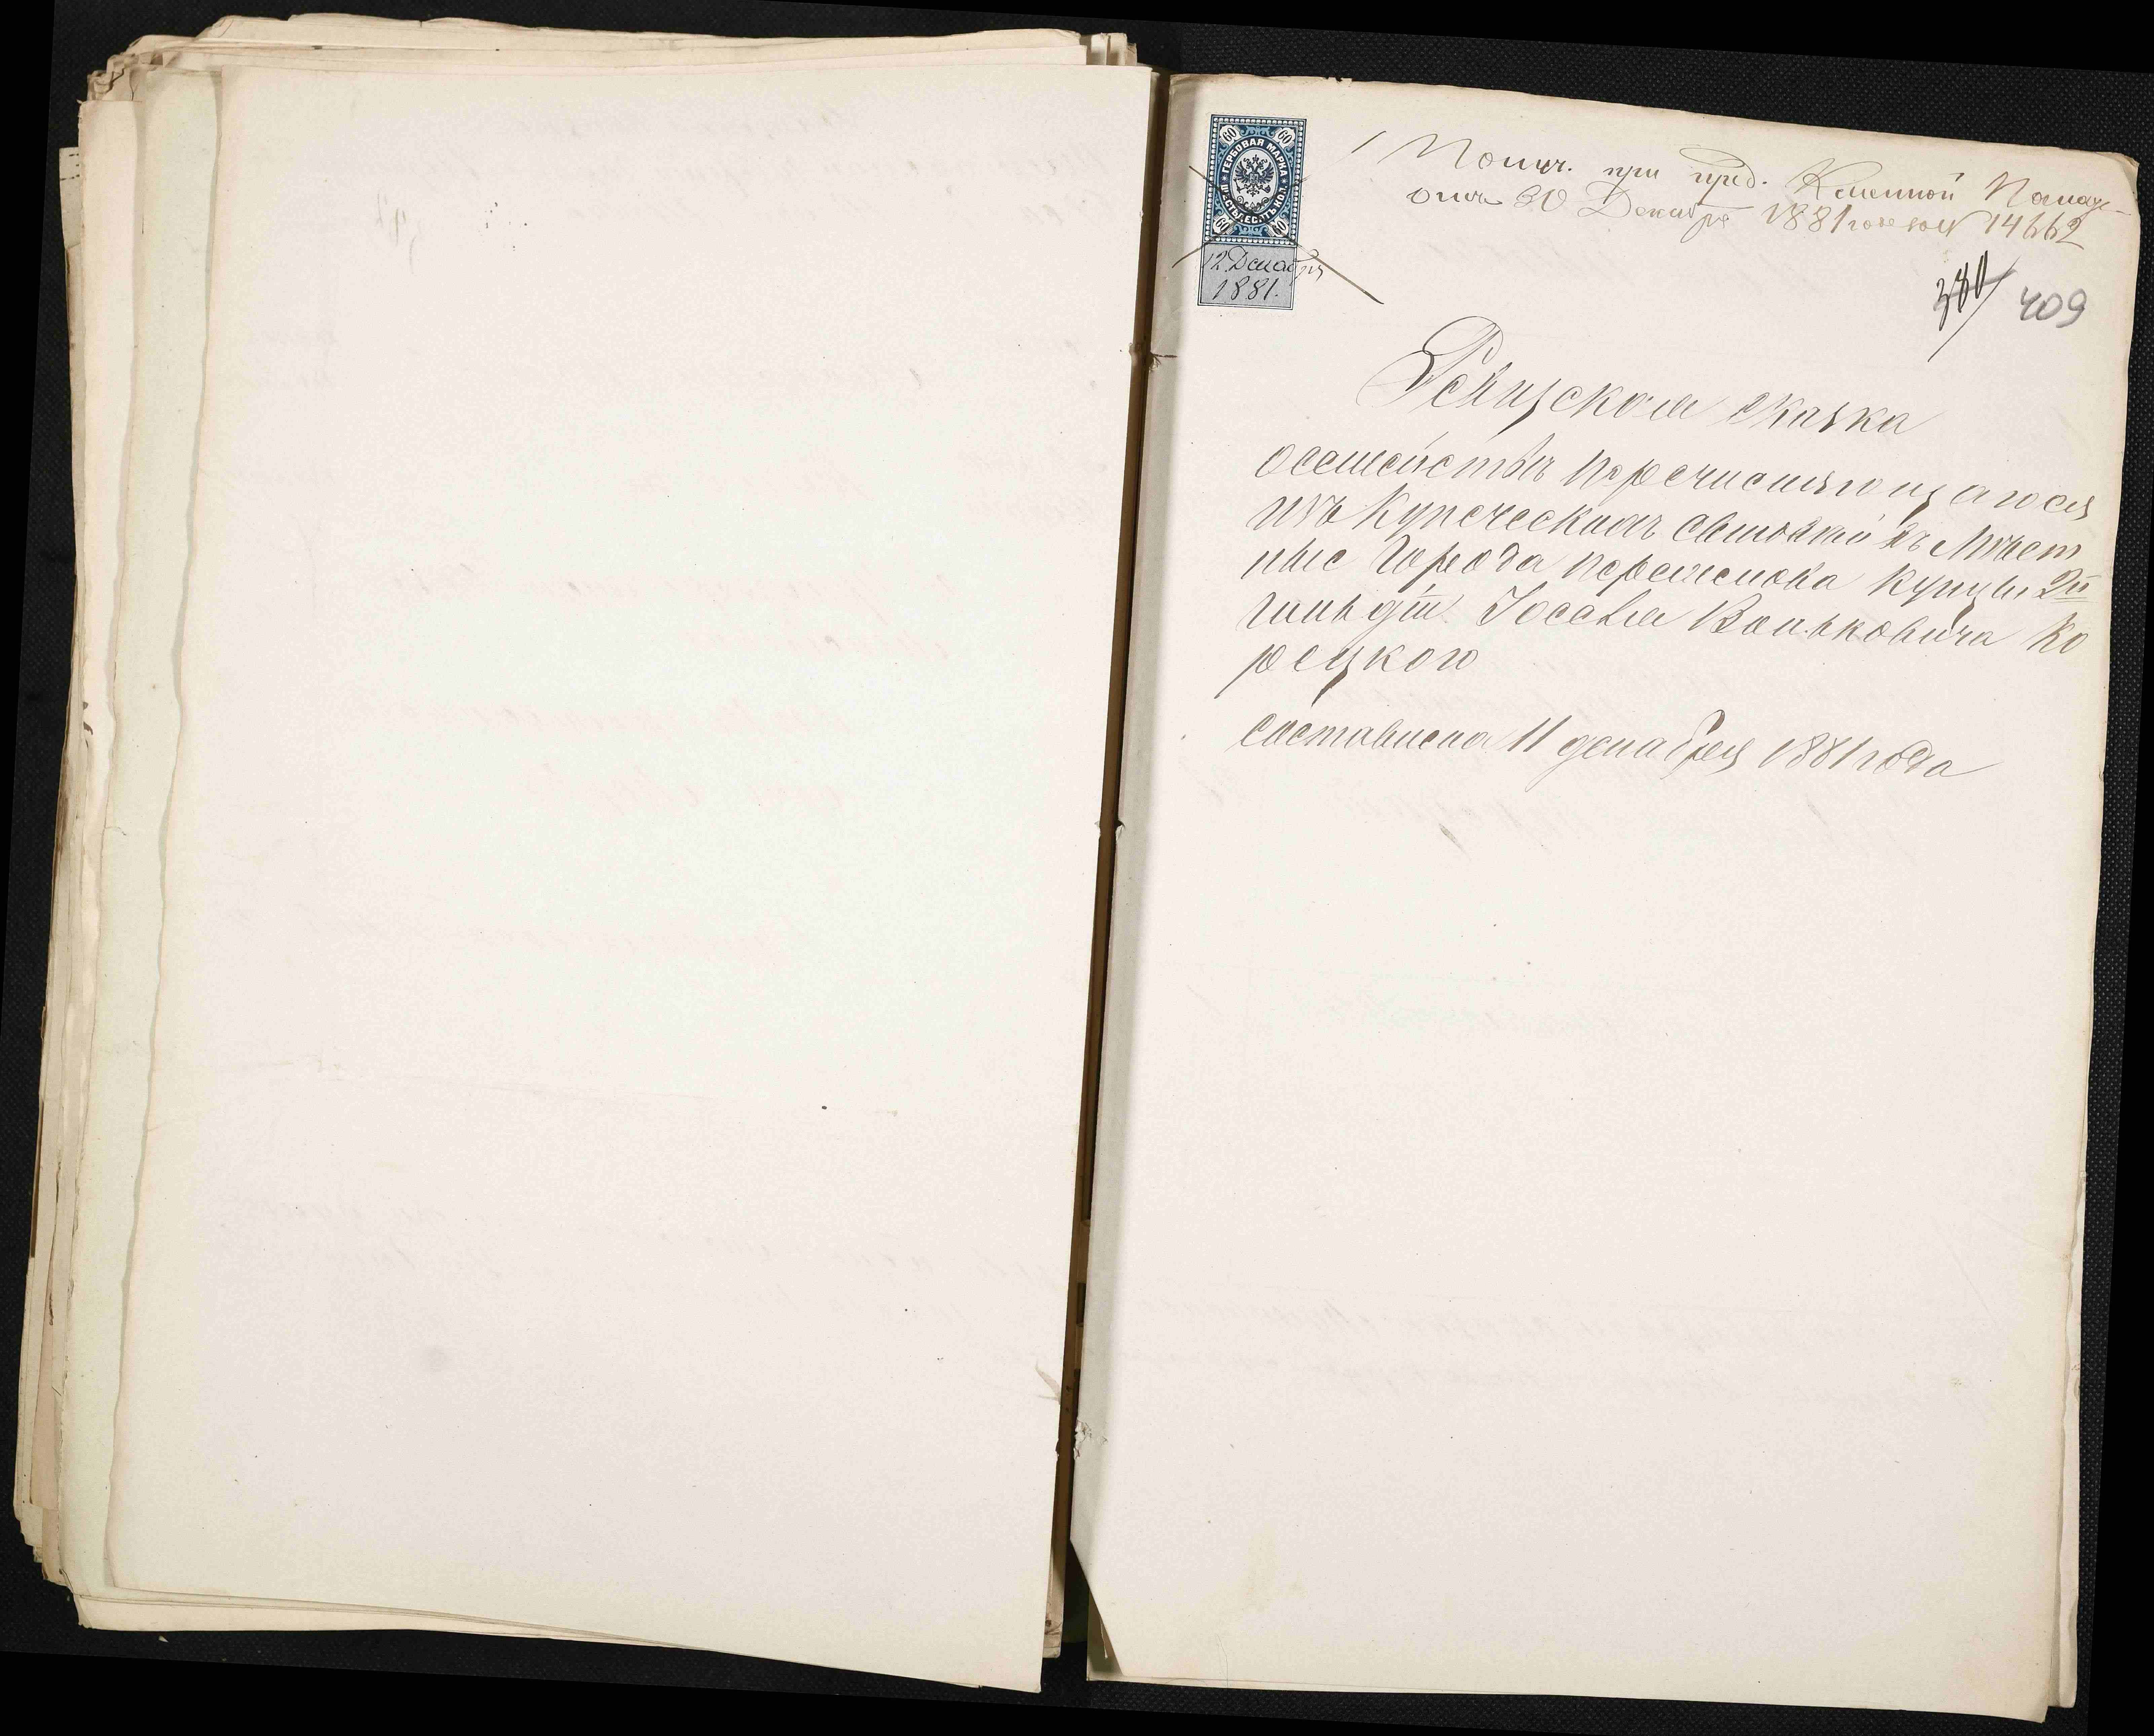 ГЕРБОВАЯ МАРКА
ШЕСТЬДЕСЯТЪ КОП.
60 60
60 60
12 Декабря
1881.
Получ. при пред. Казенной Палаты
отъ 30 Декабря 1881 года за № 14662
380 409
Ревизская сказка
о семействѣ перечисляющагося
изъ Купеческихъ свидѣт въ Мѣщан
ные города Кременчука купца 2й
гильдіи Іосселя Вольковича Ко
рецкого
составлена 11 декабря 1881 года